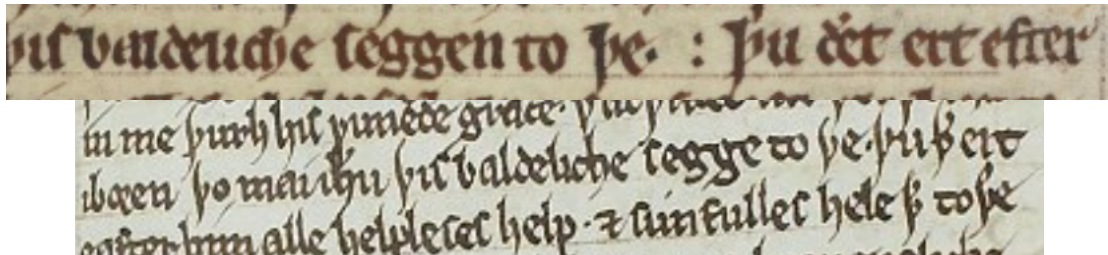 þis baldeliche seggen to þe· : þu ðet ert efter
in me þurh his ƿunede grace·
iboren þo mai ihu þis baldeliche segge to þe· þu ꝥ ert
eafter him alle helpleses help· ⁊ sunfulles hele ꝥ to þe